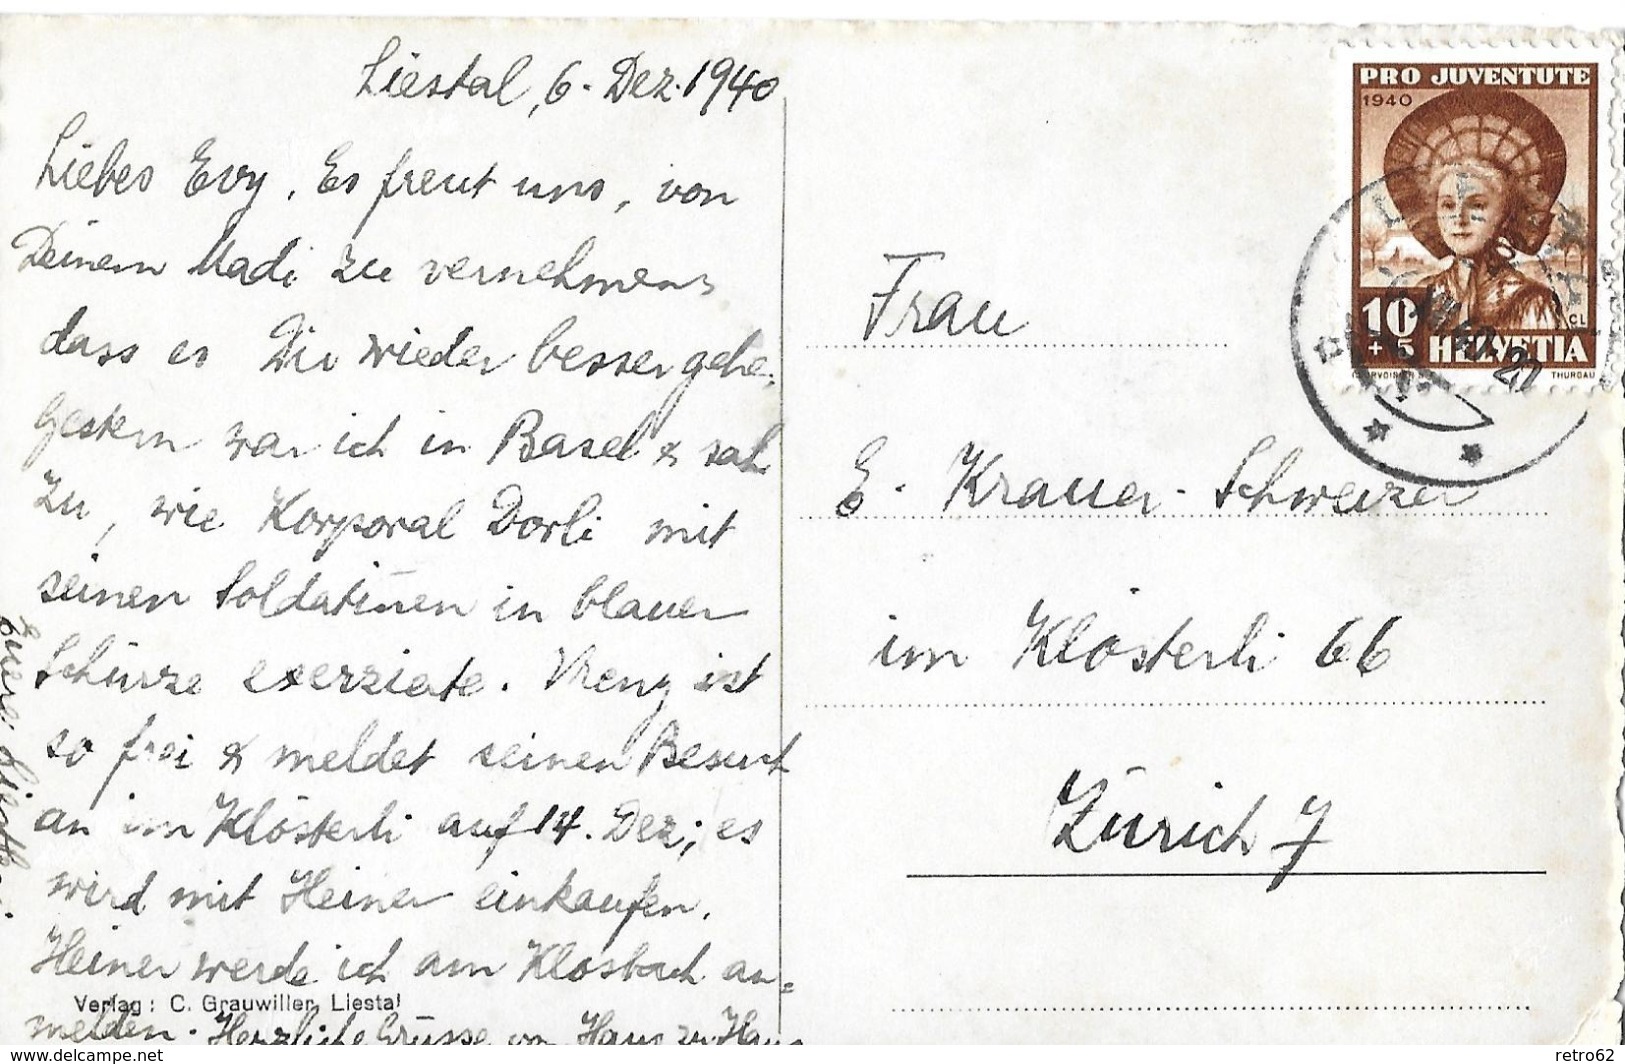 Liestal, 6. Dez. 1940
Liebes Evy. Es freut uns, von
Deinem Madi zu vernehmen,
dass es Dir wieder besser gehe.
Gestern war ich in Basel & sah
zu, wie Korporal Dorli mit
seinen Soldatinen in blauer
Schürze exerzierte. Vreny ist
so frei & meldet seinen Besuch
an im Klösterli auf 14. Dez.; es
wird mit Heiner einkaufen.
Heiner werde ich am Klosbach an=
melden. Herzliche Grüsse von Haus zu Haus
Eure
Verlag: C. Grauwiller, Liestal
PRO JUVENTUTE
1940
10
+5 HELVETIA
CL
THURGAU
Frau
E. Krauer-Schweizer
im Klösterli 66
Zürich 7
delcampe.net
retro62